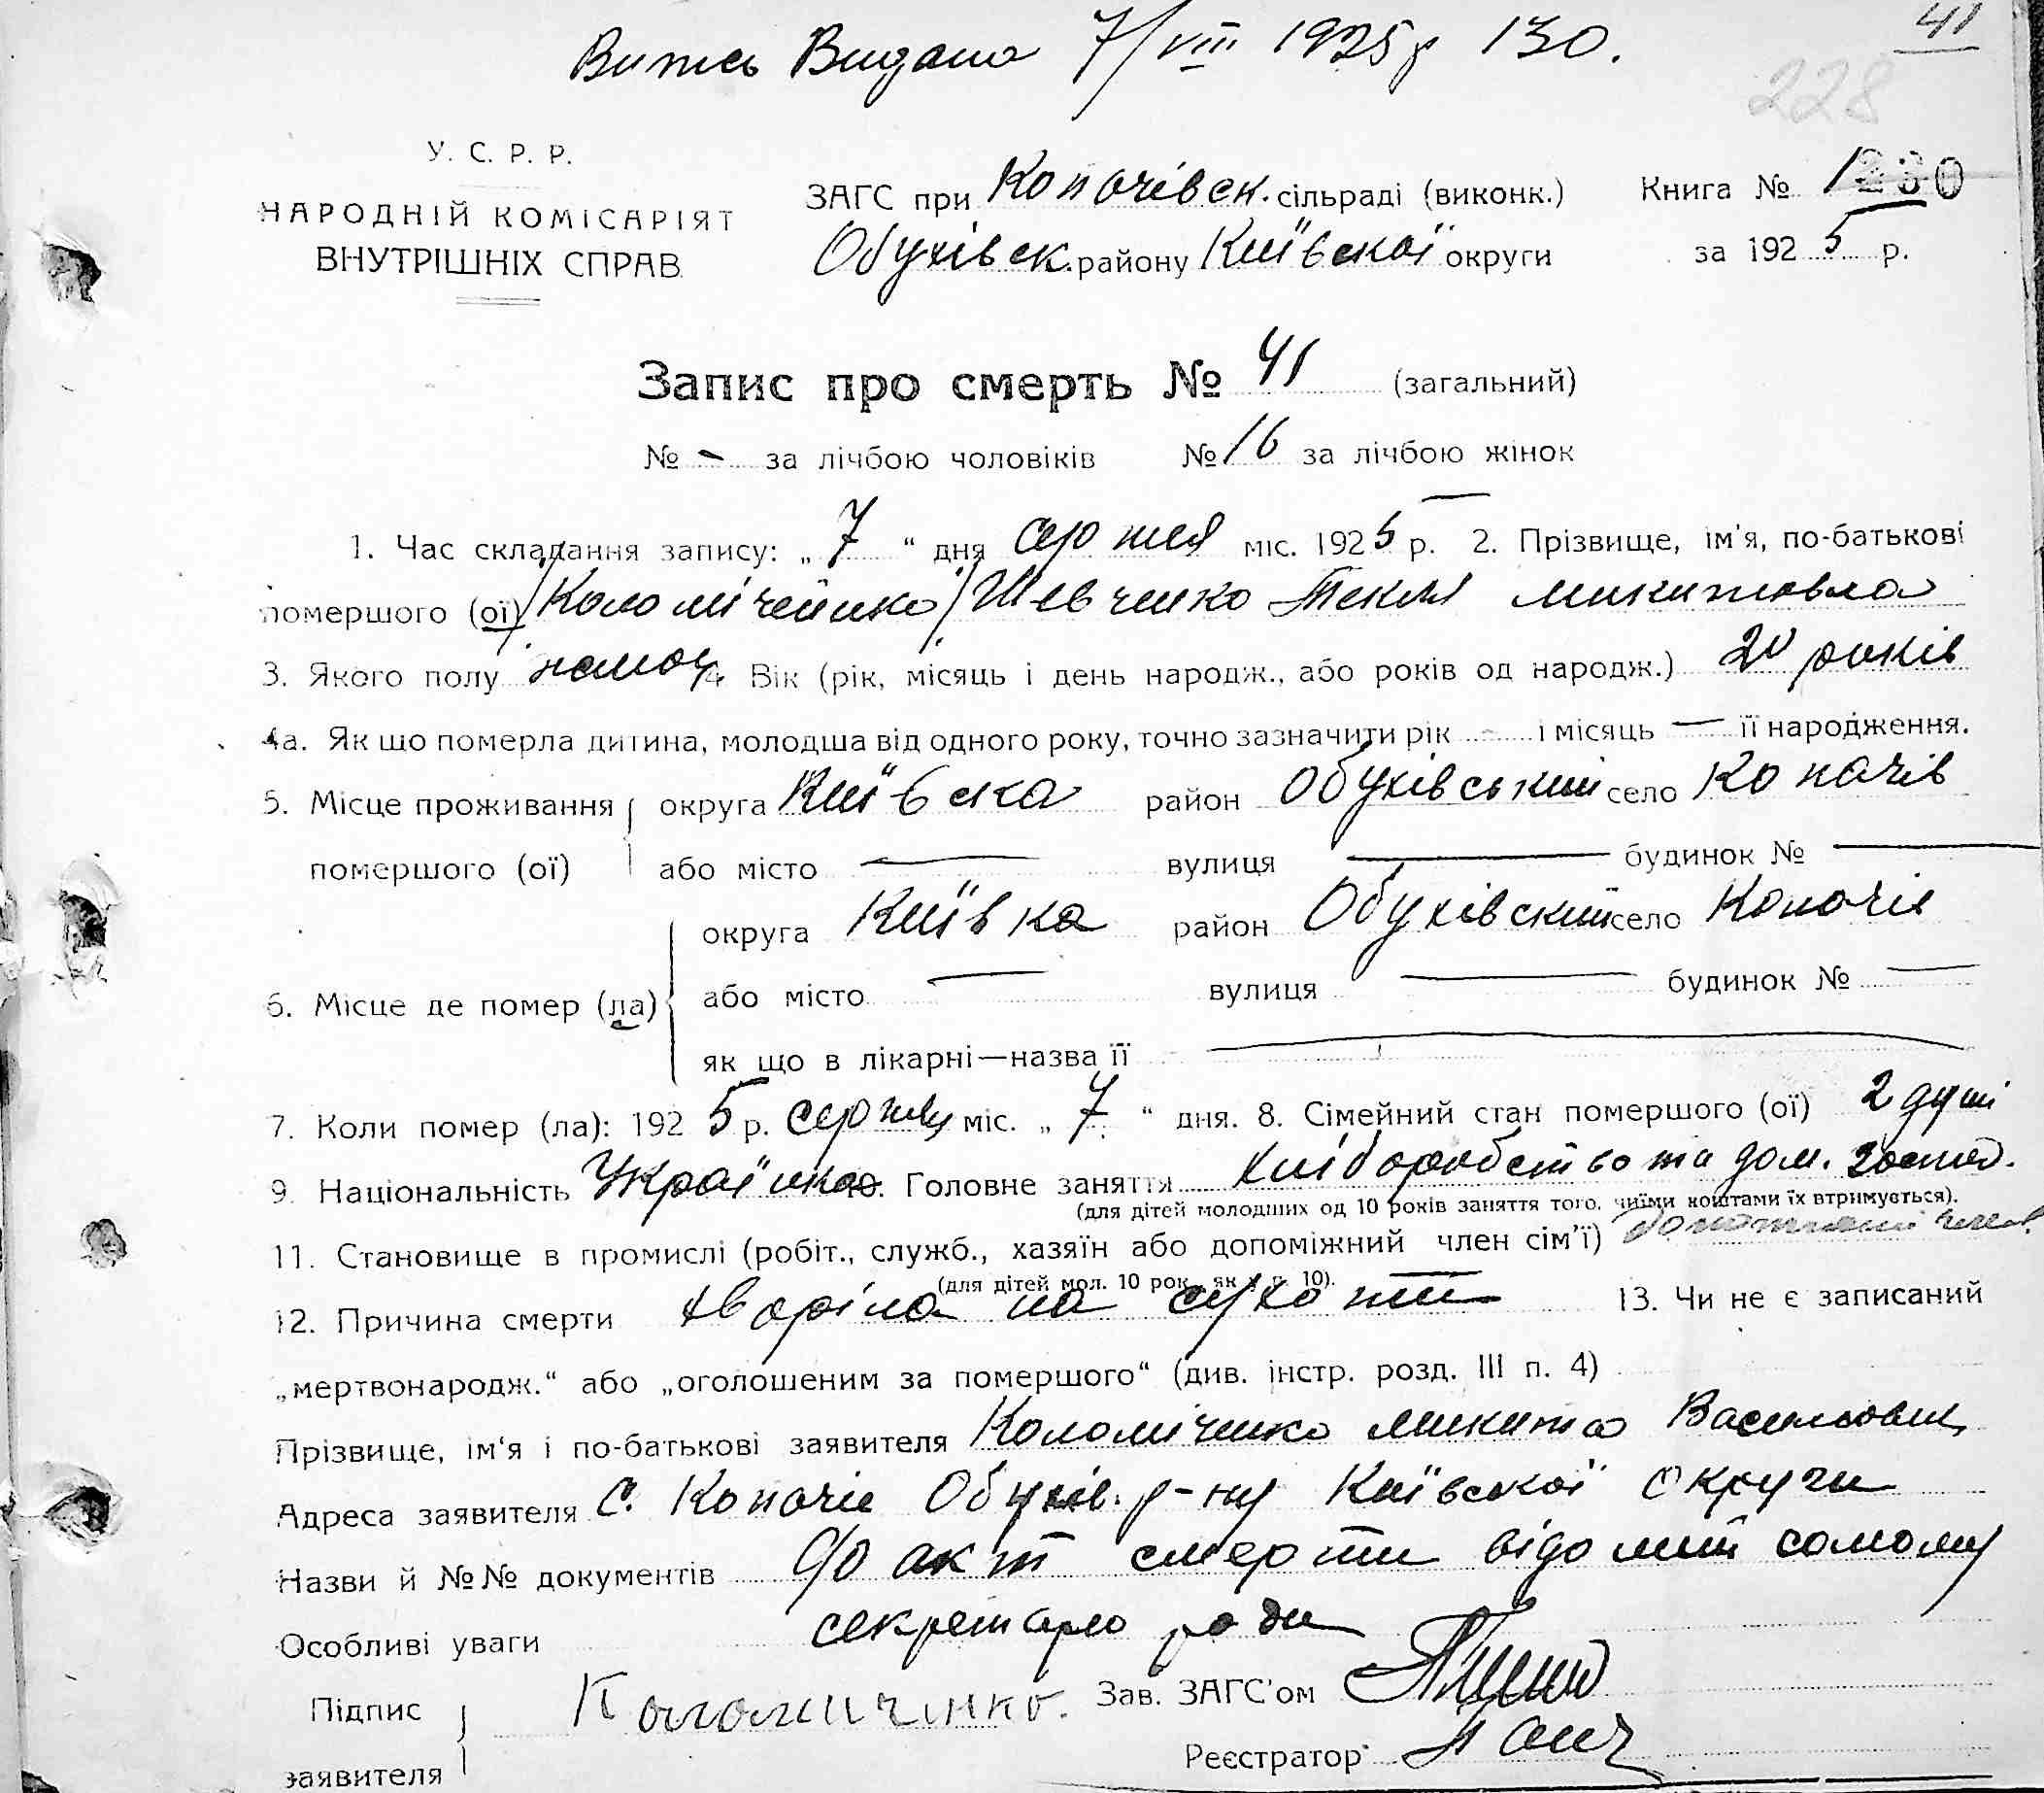 Витсь Видана 7/VIII 1925 р 130.
41
228
У. С. Р. Р.
НАРОДНІЙ КОМІСАРІЯТ
ВНУТРІШНІХ СПРАВ
ЗАГС при Копачівск. сільраді (виконк.)
Обухівск. району Київскої округи
Книга № 1
230
за 1925 р.
Запис про смерть № 41 (загальний)
№ - за лічбою чоловіків № 16 за лічбою жінок
1. Час складання запису: „ 7 “ дня серпня міс. 1925 р. 2. Прізвище, ім'я, по-батькові
помершого (ої) /Коломійченко/ Шевченко Текля Микитовна
3. Якого полу жіноч. 4. Вік (рік, місяць і день народж., або років од народж.) 20 років
4а. Як що померла дитина, молодша від одного року, точно зазначити рік - і місяць — її народження.
5. Місце проживання помершого (ої) округа Київска район Обухівський село Копачів
або місто — вулиця — будинок № —
6. Місце де помер (ла) округа Київка район Обухівский село Копачів
або місто — вулиця — будинок № —
як що в лікарні—назва її —
7. Коли помер (ла): 1925 р. серпня міс. „ 7 “ дня. 8. Сімейний стан помершого (ої) 2 душі
9. Національність Українка 10. Головне заняття хліборобство та дом. господ.
(для дітей молодших од 10 років заняття того, чиїми коштами їх втримується).
11. Становище в промислі (робіт., служб., хазяїн або допоміжний член сім'ї)
(для дітей мол. 10 рок., як в п. 10).
12. Причина смерти хворіла на сухоти 13. Чи не є записаний
„мертвонародж.“ або „оголошеним за помершого“ (див. інстр. розд. III п. 4)
Прізвище, ім'я і по-батькові заявителя Коломіченко Микита Васильович
Адреса заявителя С. Копачів Обухів. р-ну Київської округи
Назви й №№ документів акт смерти відомий самому
Особливі уваги секретарю ради
Підпис заявителя Коломиченко. Зав. ЗАГС'ом
Реєстратор